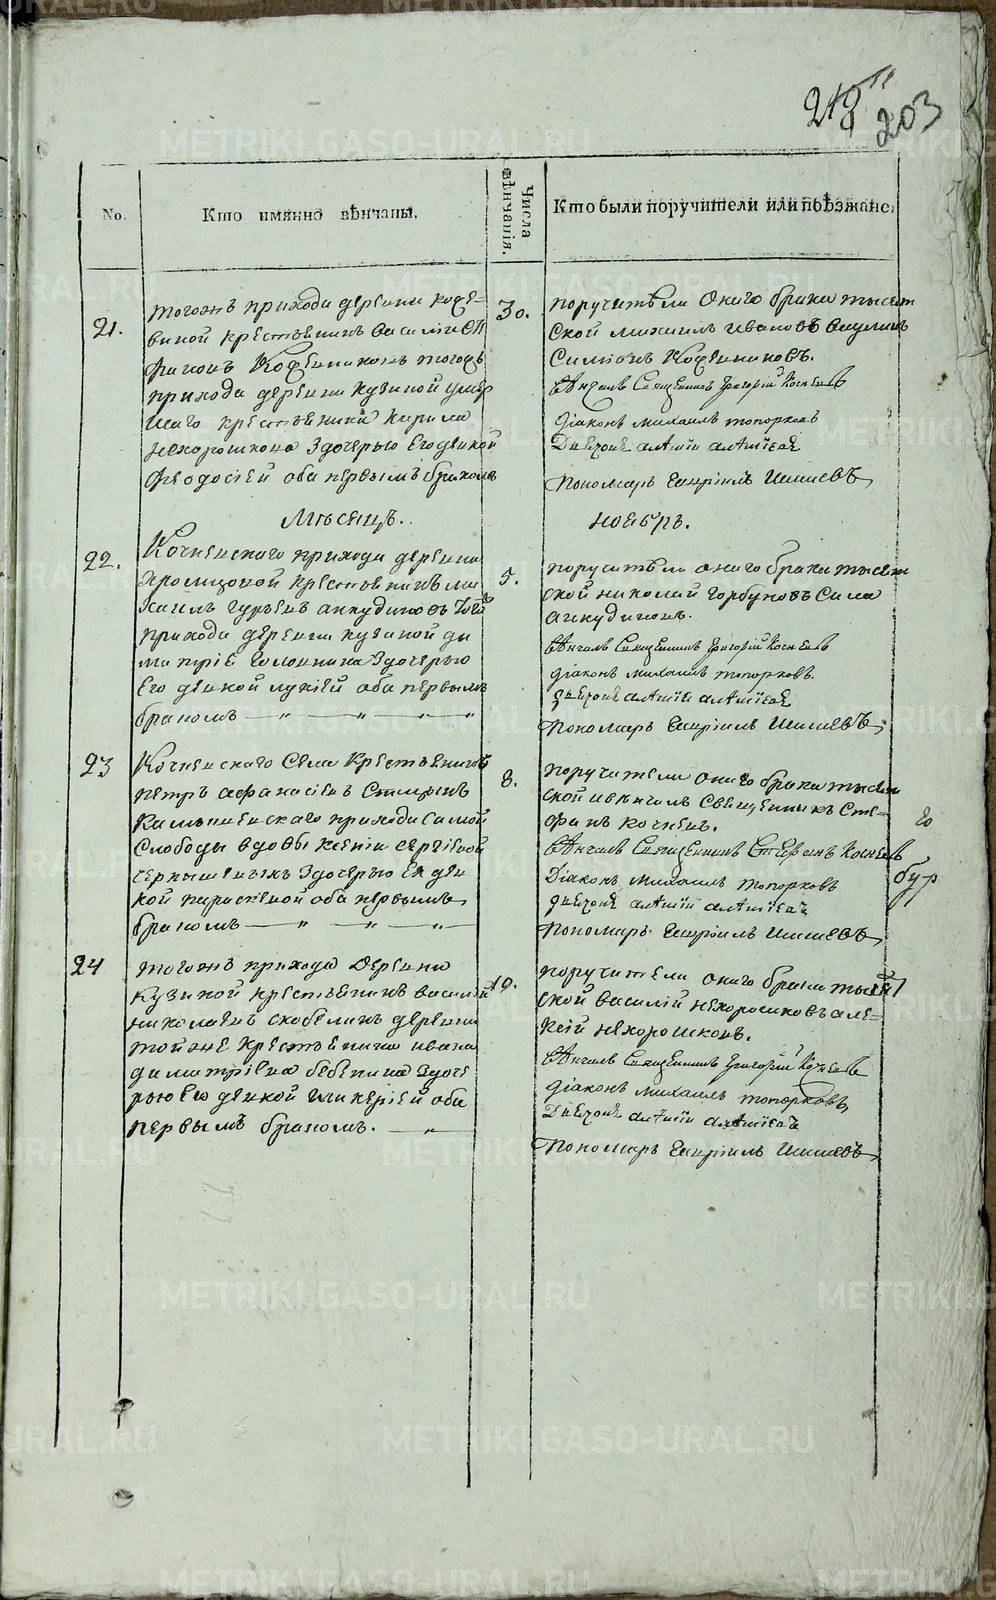 218
203
No.
Кто имянно вѣнчаны.
Числа вѣнчанія.
Кто были поручители или поѣзжане.
21.
тогожъ прихода деревни
крестьянинъ василий
тогожъ
прихода деревни кузиной умер
шаго крестьянина кирила
нехорошкова здочерью его девкой
феодосіей оба первымъ бракомъ
30.
поручители онаго брака тысяц
ской михаилъ ивановъ
симіонъ
вѣнчалъ священникъ григорій кочневъ
діаконъ михаилъ топорковъ
дьячокъ алѣксій алѣксіевъ
пономарь гавріилъ ишиевъ
Мѣсяцъ.
ноебрь.
22.
Кочневскаго прихода деревни
крестьянинъ ми
хаилъ гурьевъ анкудиновъ того
прихода деревни кузиной ди
митрія головнина здочерью
его девкой лукіей оба первымъ
бракомъ
5.
поручители онаго брака тысяц
ской николай горбуновъ сила
анкудиновъ.
вѣнчалъ священникъ григорій кочневъ
діаконъ михаилъ топорковъ.
дьячокъ алѣксій алѣксіевъ
пономарь гавріилъ ишиевъ
23
Кочневскаго села крестьянинъ
петръ афанасіевъ
прихода самой
слободы вдовы ксеніи сергіевой
чернышевыхъ здочерью ея дев
кой параскевой оба первымъ
бракомъ
8.
поручители онаго брака тысяц
ской ивѣнчалъ священникъ сте-
фанъ кочневъ.
вѣнчалъ священникъ стефанъ кочневъ
діаконъ михаилъ топорковъ
дьячокъ алѣксій алѣксіевъ
пономарь гавріилъ ишиевъ
24
тогожъ прихода деревни
кузиной крестьянинъ василій
николаевъ скобелинъ деревни
тойже крестьянина ивана
димитріева бебенина здоче
рью его девкой гликеріей оба
первымъ бракомъ.
19.
поручители онаго брака тысяц
ской василій нехорошковъ але-
ксій нехорошковъ.
вѣнчалъ священникъ григорій кочневъ
діаконъ михаилъ топорковъ
дьячокъ алѣксій алѣксіевъ
пономарь гавріилъ ишиевъ
METRIKI.GASO-URAL.RU